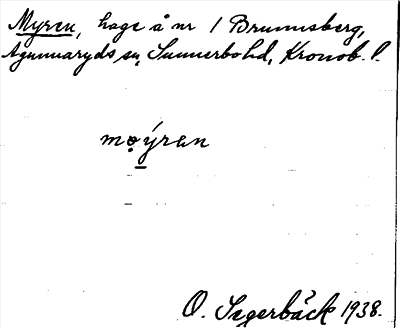 Myren, hage å nr 1 Brunnsberg,
Agunnaryds sn, Sunnerbo hd, Kronob. l.
mo̤ýren
O. Segerbäck 1938.